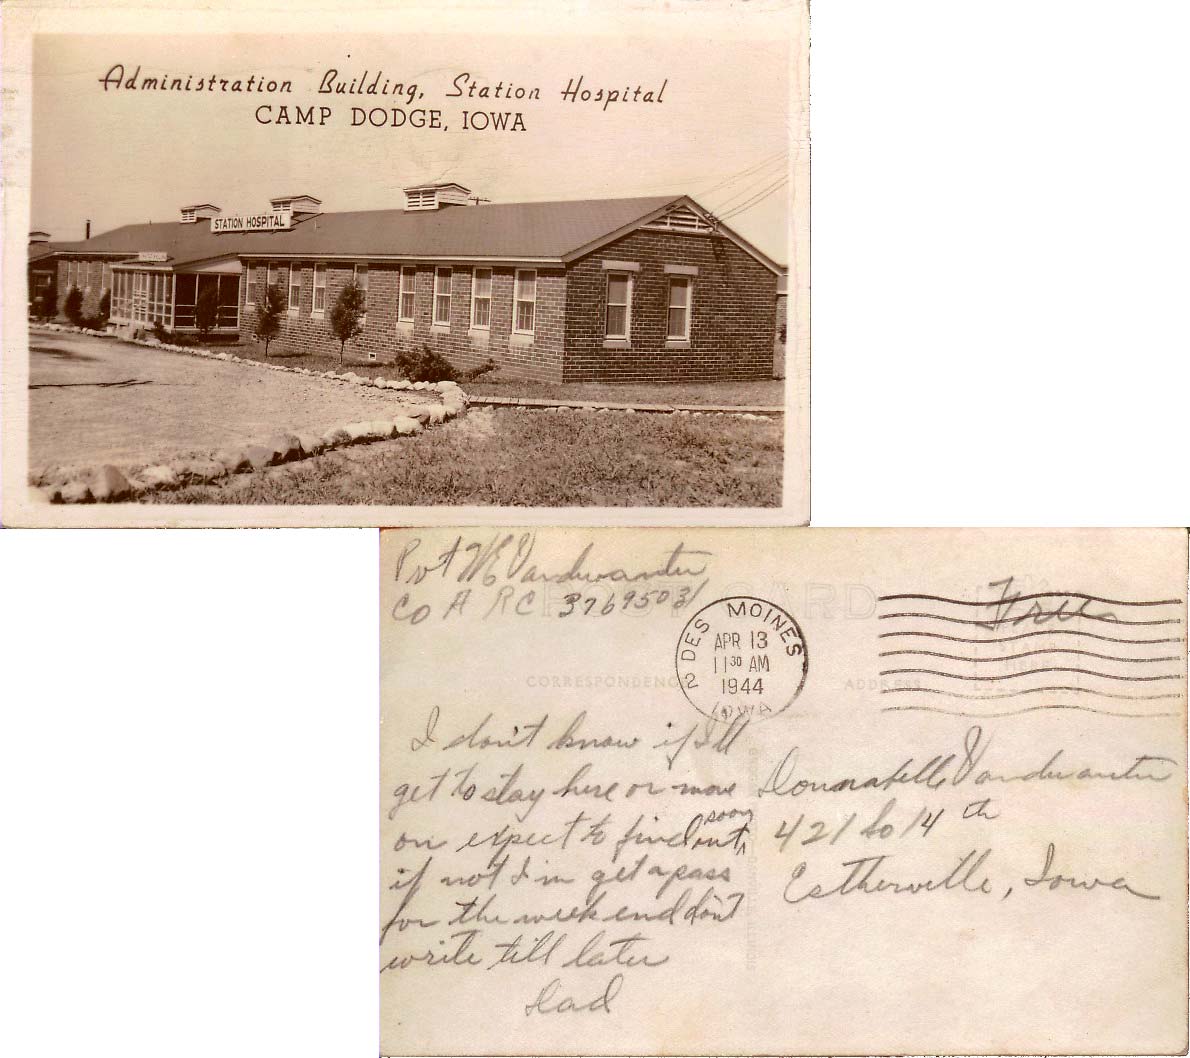 Administration Building, Station Hospital
CAMP DODGE, IOWA
STATION HOSPITAL
Pvt WE Vandwanter
Co A RC 37695031
POST CARD
Free
2 DES MOINES
APR 13
11 30 AM
1944
IOWA
PLACE STAMP
HERE
CORRESPONDENCE
ADDRESS
I don't know if I'll
get to stay here or move
on expect to find out soon
if not I'm get a pass
for the week end don't
write till later
Dad
Donnabelle Vandwanter
421 So 14th
Estherville, Iowa